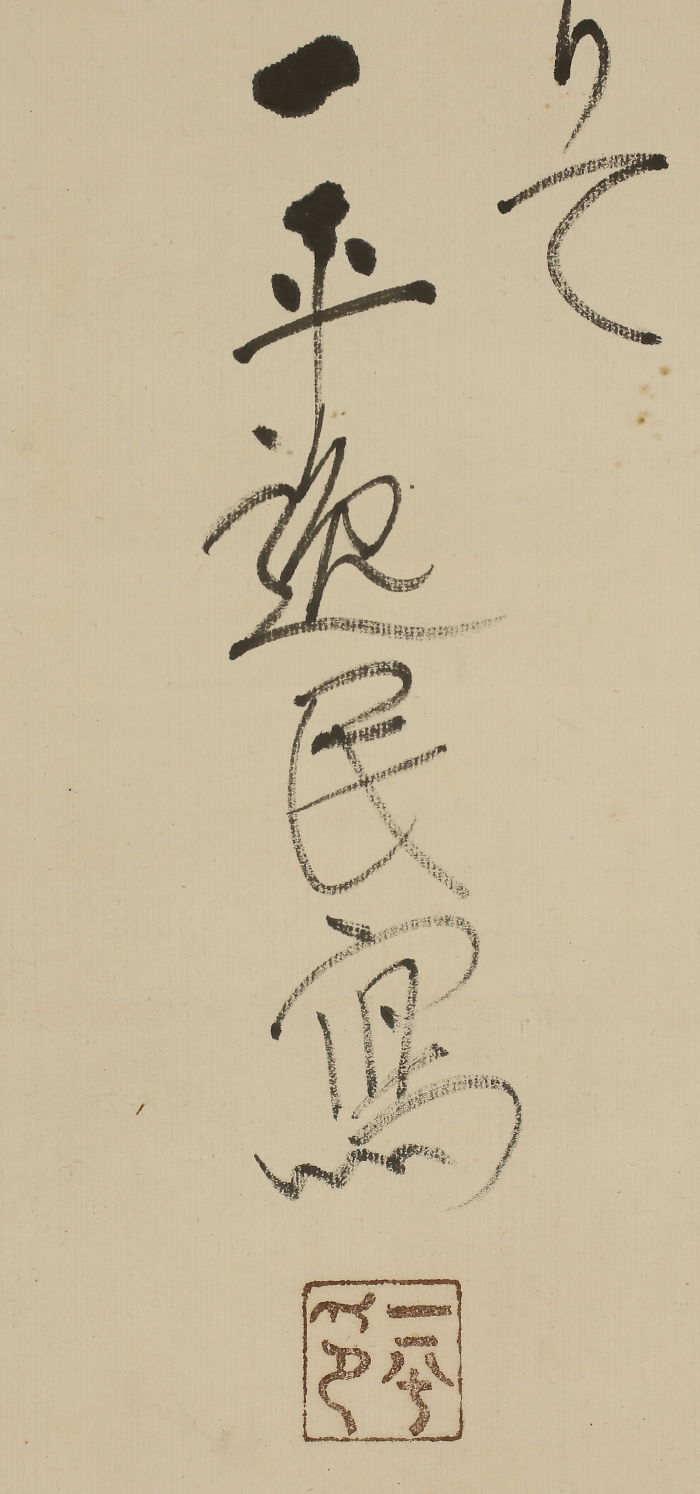 りて
一平逸民寫
一平